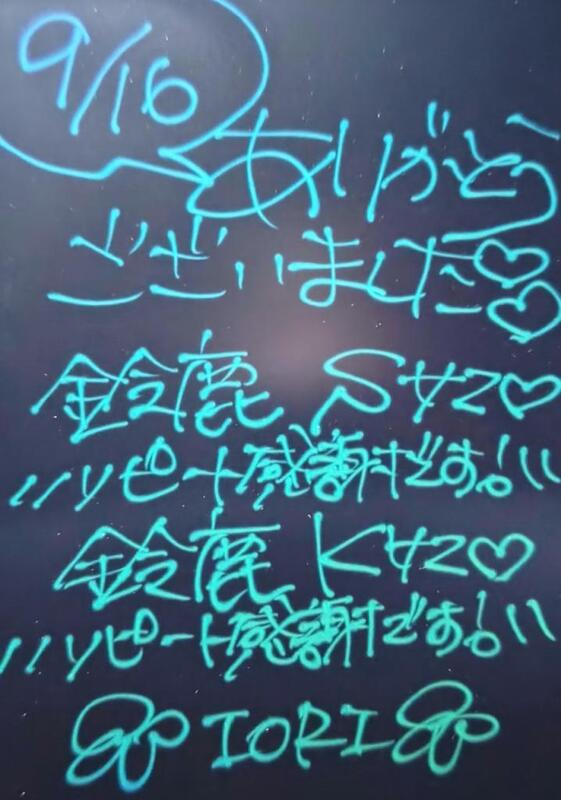 9/16
ありがとう
ございました♡♡
鈴鹿 Sサン♡
〃リピート感謝です!〃
鈴鹿 Kサン♡
〃リピート感謝です!〃
IORI